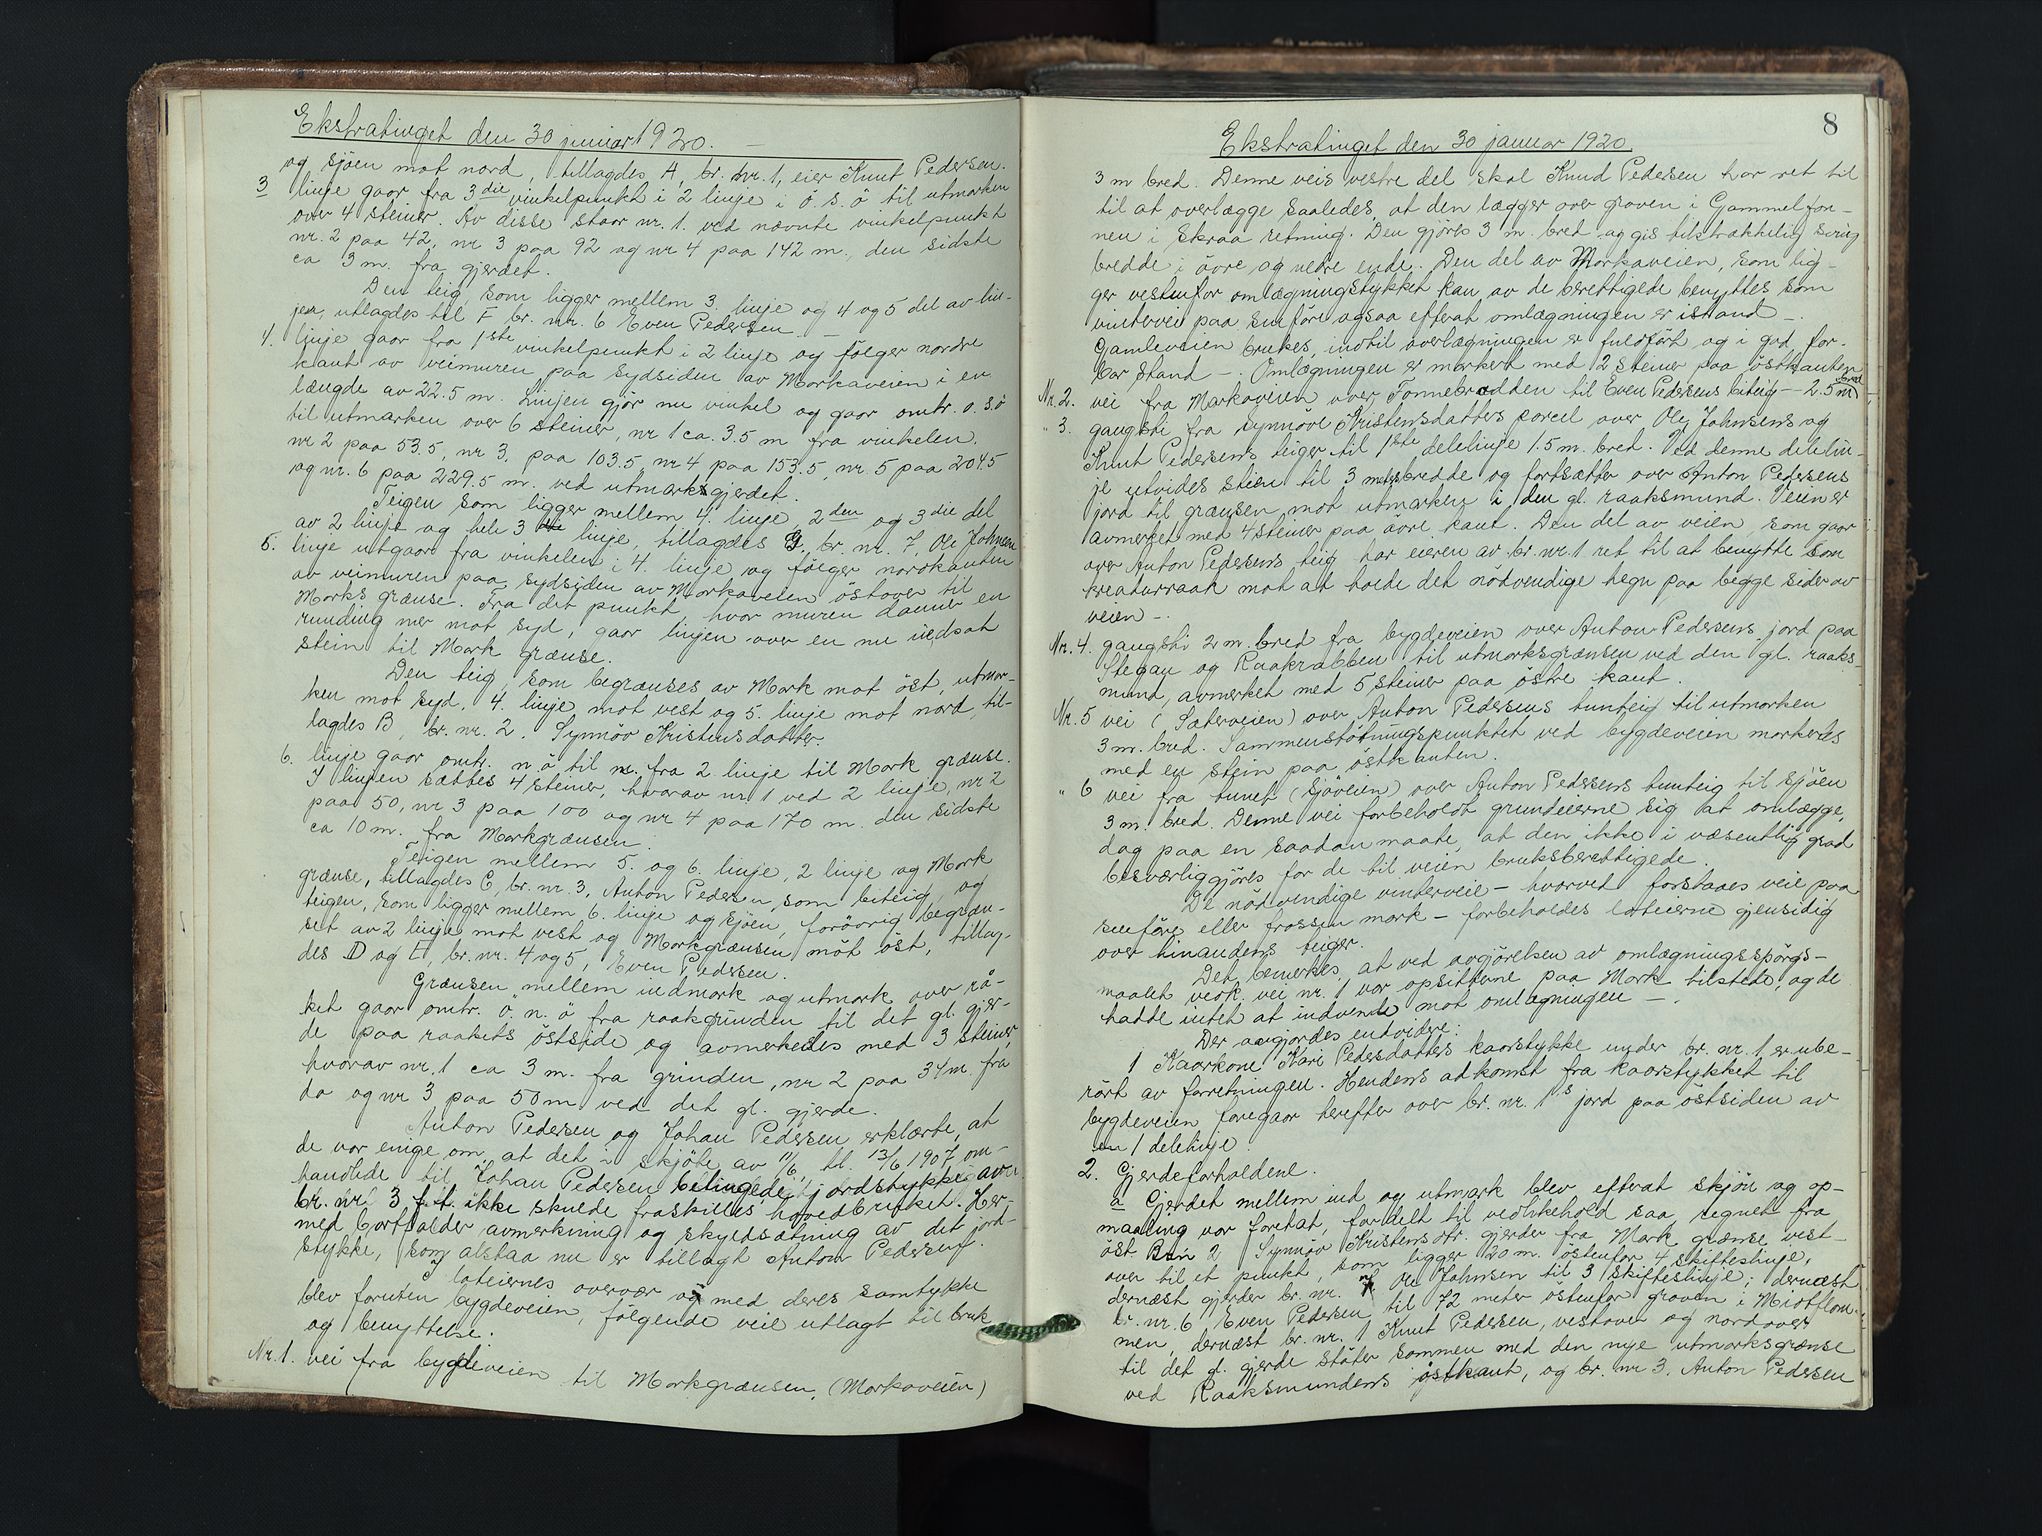 Ekstratinget den 30 januar 1920. –
og sjöen mot nord, tillagdes A, br. nr. 1, eier Knut Pedersen.
3 linje gaar fra 3die vinkelpunkt i 2 linje i ö. s. ö til utmarken
over 4 steiner. Av disse staar nr. 1. ved nævnte vinkelpunkt
nr. 2 paa 42, nr 3 paa 92 og nr 4 paa 142 m., den sidste
ca 3 m. fra gjerdet.
Den teig, som ligger mellem 3. linje og 4 og 5 del av lin-
jen, utlagdes til F br. nr. 6 Even Pedersen –
4. linje gaar fra 1ste vinkelpunkt i 2 linje og fölger nordre
kant av veimuren paa sydsiden av Markaveien i en
længde av 22.5 m. Linjen gjör nu vinkel og gaar omtr. ö. s. ö
til utmarken over 6 steiner, nr 1 ca. 3.5 m fra vinkelen.
nr 2 paa 53.5, nr 3. paa 103.5, nr 4 paa 153.5, nr. 5 paa 204.5
og nr. 6 paa 229.5 m. ved utmarksgjerdet.
Teigen som ligger mellem 4. linje, 2den og 3die del
av 2 linje og hele 3 linje, tillagdes G, br. nr. 7, Ole Johnsen
5. linje utgaar fra vinkelen i 4. linje og fölger nordkanten
av veimuren paa sydsiden av Markaveien östover til
Marks grænse. Fra det punkt hvor muren danner en
runding mer mot syd, gaar linjen over en nu nedsat
stein til Mark grænse.
Den teig, som begrænses av Mark mot öst, utmar-
ken mot syd, 4. linje mot vest og 5. linje mot nord, til-
lagdes B, br. nr. 2. Synnöv Kristensdatter.
6. linje gaar omtr. n ö til n. fra 2. linje til Mark grænse.
I linjen sættes 4 steiner, hvorav nr. 1 ved 2 linje, nr 2
paa 50, nr 3 paa 100 og nr 4 paa 170 m. den sidste
ca 10 m. fra Markgrænsen.
Teigen mellem 5. og 6. linje, 2 linje og Mark
grænse, tillagdes C, br. nr. 3, Anton Pedersen, som biteig, og
teigen, som ligger mellem 6. linje og sjöen, foröövrig begræn-
set av 2 linje mot vest og Markgrænsen möt öst, tillag-
des D og E, br. nr. 4 og 5, Even Pedersen.
Grænsen mellem indmark og utmark over rå-
ket gaar omtr. ö. n. ö fra raakgrinden til det gl. gjer-
de paa raakets östside og avmerkedes med 3 steiner,
hvorav nr. 1 ca 3 m. fra grinden, nr 2 paa 34 m. fra
do og nr 3 paa 50 m ved det gl. gjerde.
Anton Pedersen og Johan Pedersen erklærte, at
de var enige om, at det i skjöte av 11/6, tl. 13/6 1907 om-
handlede til Johan Pedersen betingede jordstykke av
br. nr. 3 f. t. ikke skulde fraskilles hovedbruket. Her-
med bortfalder avmerkning og skyldsætning av det jord-
stykke, som altsaa nu er tillagt Anton Pedersen.
I loteiernes overvær og med deres samtykke
blev foruten bygdeveien, fölgende veie utlagt til bruk
og benyttelse.
Nr. 1. vei fra bygdeveien til Markgrænsen, (Markaveien)
8
Ekstratinget den 30 januar 1920.
3 m bred. Denne veis vestre del skal Knud Pedersen har ret til
til at overlægge saaledes, at den lægger over graven i Gammelfon-
nen i skraa retning. Den gjöres 3 m. bred og gis tilstrækkelig sving
bredde i övre og nedre ende. Den del av Markaveien, som lig-
ger vestenfor omlægningstykket kan av de berettigede benyttes som
vintervei paa sneföre ogsaa efterat omlægningen er istand –.
Gamleveien brukes, indtil overlægningen er fuldfört og i god for-
bar stand –. Omlægningen er merkert med 2 steiner paa östkanten
Nr. 2. vei fra Markaveien over Tonnebrødden til Even Pedersens biteig – 2.5 m bred
" 3. gangsti fra Synnöve Kristensdatters parcel over Ole Johnsens og
Knut Pedersens teiger til 1ste delelinje 1.5 m. bred. Ved denne delelin-
je utvides stien til 3 metersbredde og fortsætter over Anton Pedersens
jord til grænsen mot utmarken i den gl. raaksmund. Veien er
avmerket med 4 steiner paa övre kant. Den del av veien, som gaar
over Anton Pedersens teig har eieren av br. nr. 1 ret til at benytte som
kreaturraak mot at holde det nödvendige hegn paa begge sider av
veien –.
Nr. 4. gangsti 2 m. bred fra bygdeveien over Anton Pedersens jord paa
Stegan og Raakrabben til utmarksgrænsen ved den gl. raaks-
mund, avmerket med 5 steiner paa östre kant.
Nr. 5 vei (Sæterveien) over Anton Pedersens tunteig til utmarken
3 m. bred. Sammenstötningspunktet ved bygdeveien markeres
med en stein paa östkanten.
" 6 vei fra tunet (sjöveien) over Anton Pedersens tunteig til sjöen
3 m. bred. Denne vei forbeholdt grundeierne sig at omlægge,
dog paa en saadan maate, at den ikke i væsentlig grad
besværliggjöres for de til veien bruksberettigede.
De nödvendige vinterveie – hvorved forstaaes veie paa
sneföre eller frossen mark – forbeholdes loteierne gjensidig
over hinandens teiger.
Det bemerkes, at ved avgjörelsen av omlægningsspörgs-
maalet vedk. vei nr. 1 var opsitterne paa Mark tilstede, og de
hadde intet at indvende mot omlægningen –.
Der avgjordes endvidere:
1 Kaarkone Kari Pedersdatters kaarstykke under br. nr. 1 er ube-
rört av forretningen. Hendens adkomst fra kaarstykket til
bygdeveien foregaar herefter over br. nr. 1's jord paa östsiden av
en 1 delelinje.
2. Gjerdeforholdene.
a Gjerdet mellem ind og utmark blev efterat skjön og op-
maaling var foretat, fordelt til vedlikehold saa regnet fra
öst. Br nr 2 Synnöv Kristensdtr. gjerder fra Mark grænse vest-
over til et punkt, som ligger 20 m. östenfor 4 skifteslinje,
dernæst gjerder br. nr. 7 Ole Johnsen til 3 skifteslinje; dernæst
br. nr. 6 Even Pedersen til 72 meter östenfor graven i Midtflom-
men, dernæst br. nr. 1 Knut Pedersen, vestover og nordover
til det gl. gjerde stöter sammen med den nye utmarksgrænse
ved Raaksmundens östkant, og br. nr 3. Anton Pedersen